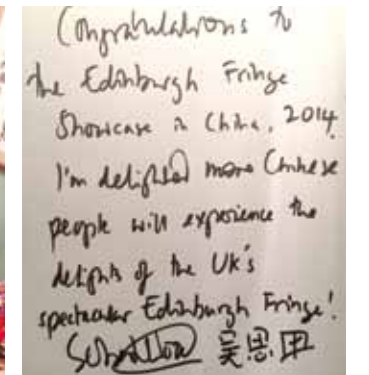 Congratulations to
the Edinburgh Fringe
Showcase in China, 2014.
I'm delighted more Chinese
people will experience the
delights of the UK's
spectacular Edinburgh Fringe!
吴思田